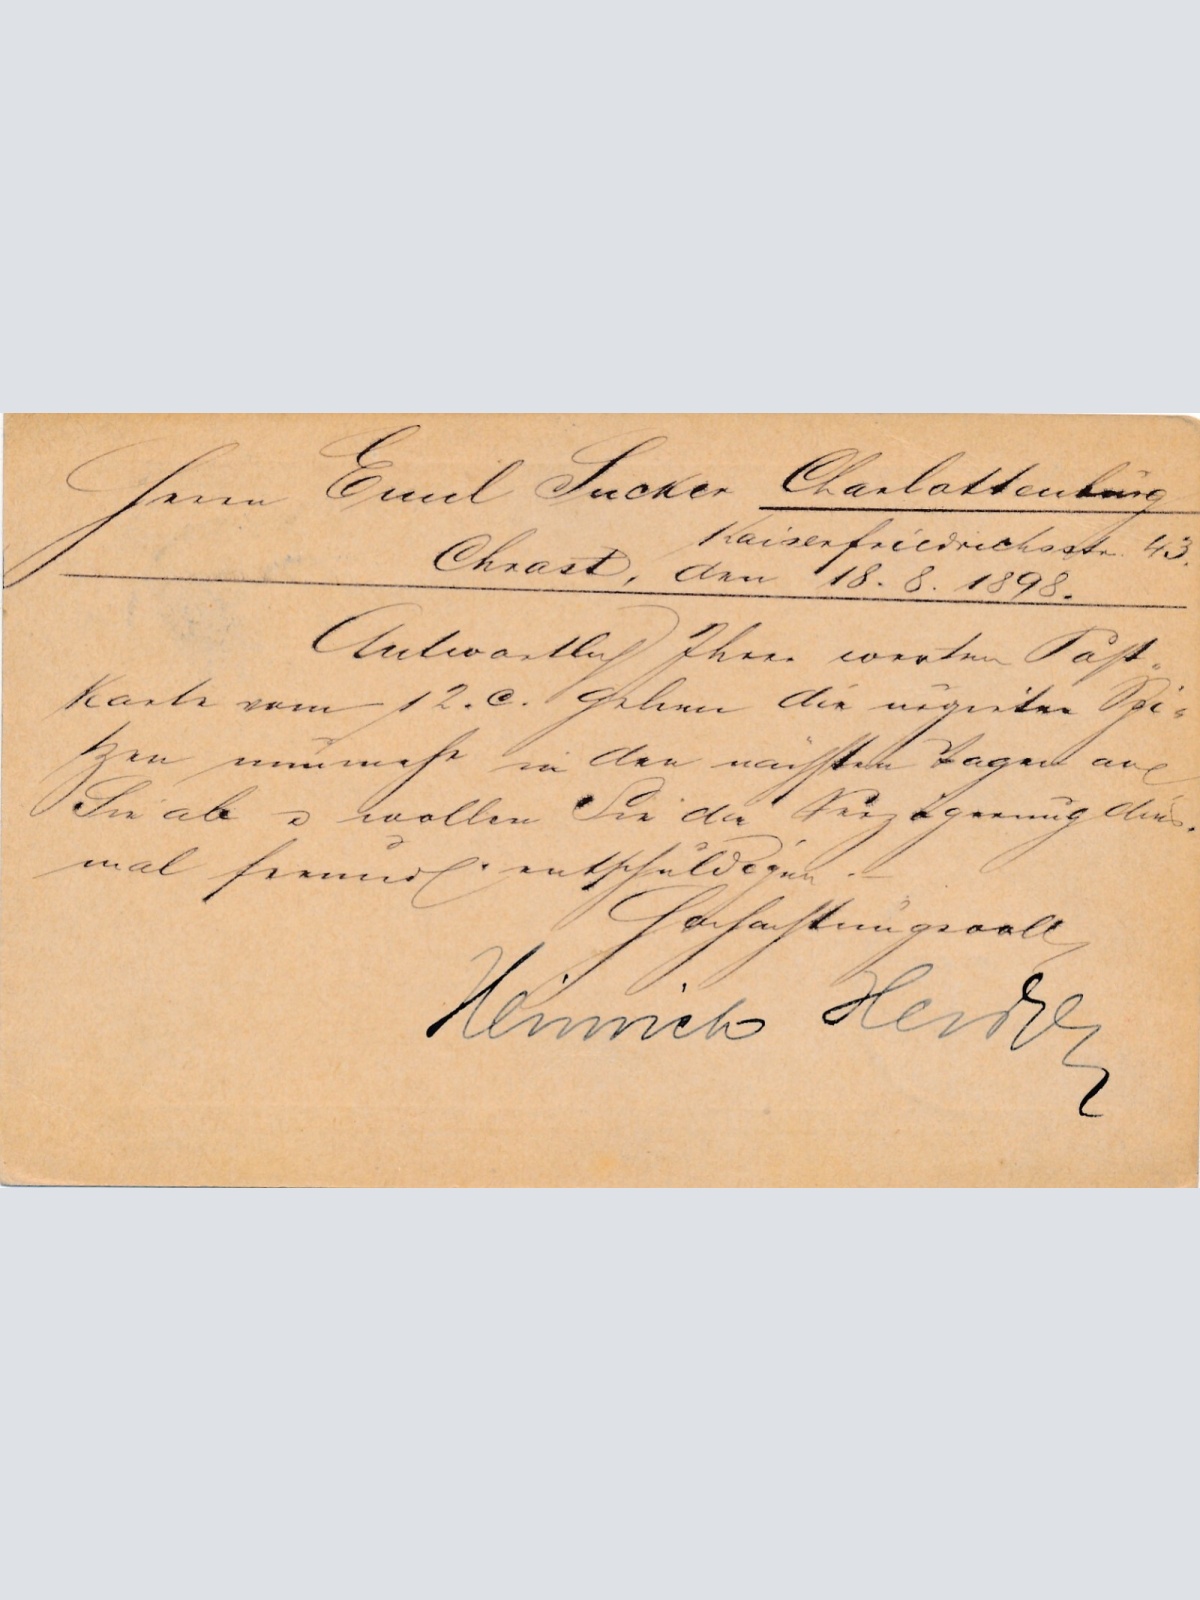 Herrn Emil Sucker Charlottenburg
Kaiserfriedrichsstr. 43.
Chrast, den 18. 8. 1898.
Antwortlich Ihrer werten Post-
karte vom 12. c. gehen die urgirten Spi-
tzen nunmehr in den nächsten Tagen an
Sie ab & wollen Sie die Verzögerung dies-
mal freundl. entschuldigen. –
Hochachtungsvoll
Heinrich